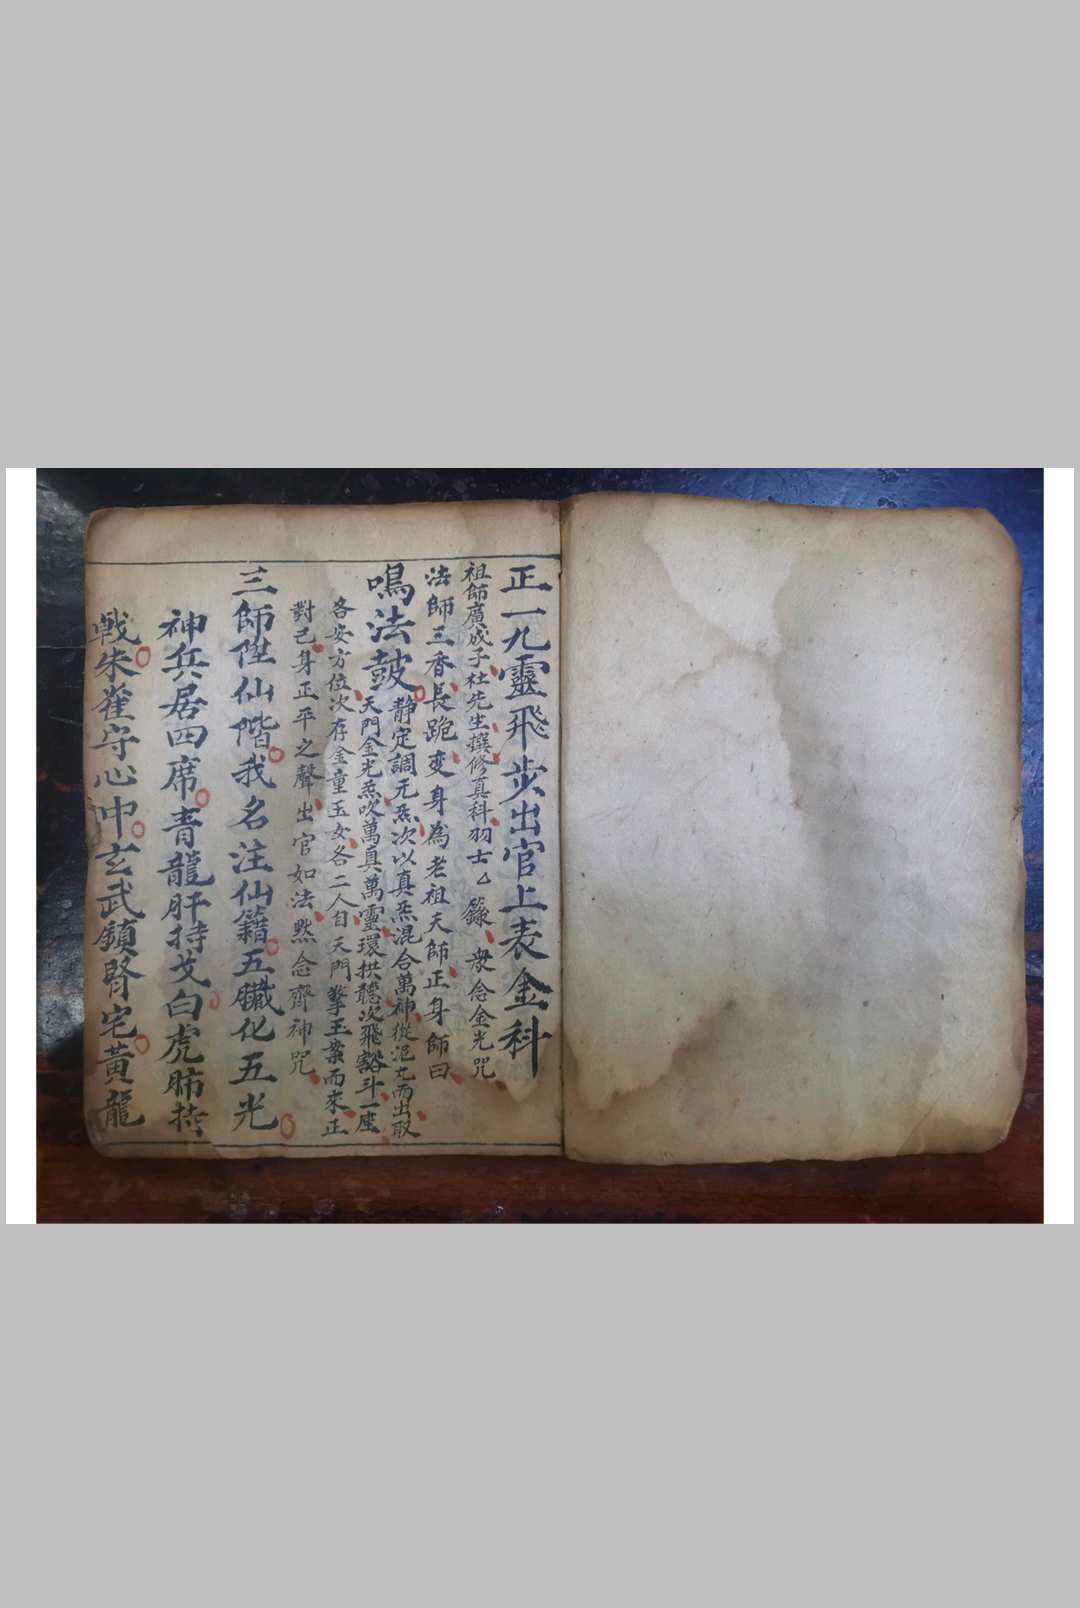 正一九靈飛步出官上表金科
祖師廣成子杜先生撰修真科羽士厶籙衆念金光咒
法師三香長跪变身為老祖天師正身師曰
鳴法鼓静定調元炁次以真炁混合萬神從泥丸而出取
天門金光炁吹萬真萬靈環拱聽次飛豁斗一座
各安方位次存金童玉女各二人自天門擎玉案而來正
對己身正平之聲出官如法黙念齊神咒
三師陞仙階我名注仙籍五臟化五光
神兵居四席青龍肝持戈白虎肺持
戟朱雀守心中玄武鎮腎宅黃龍